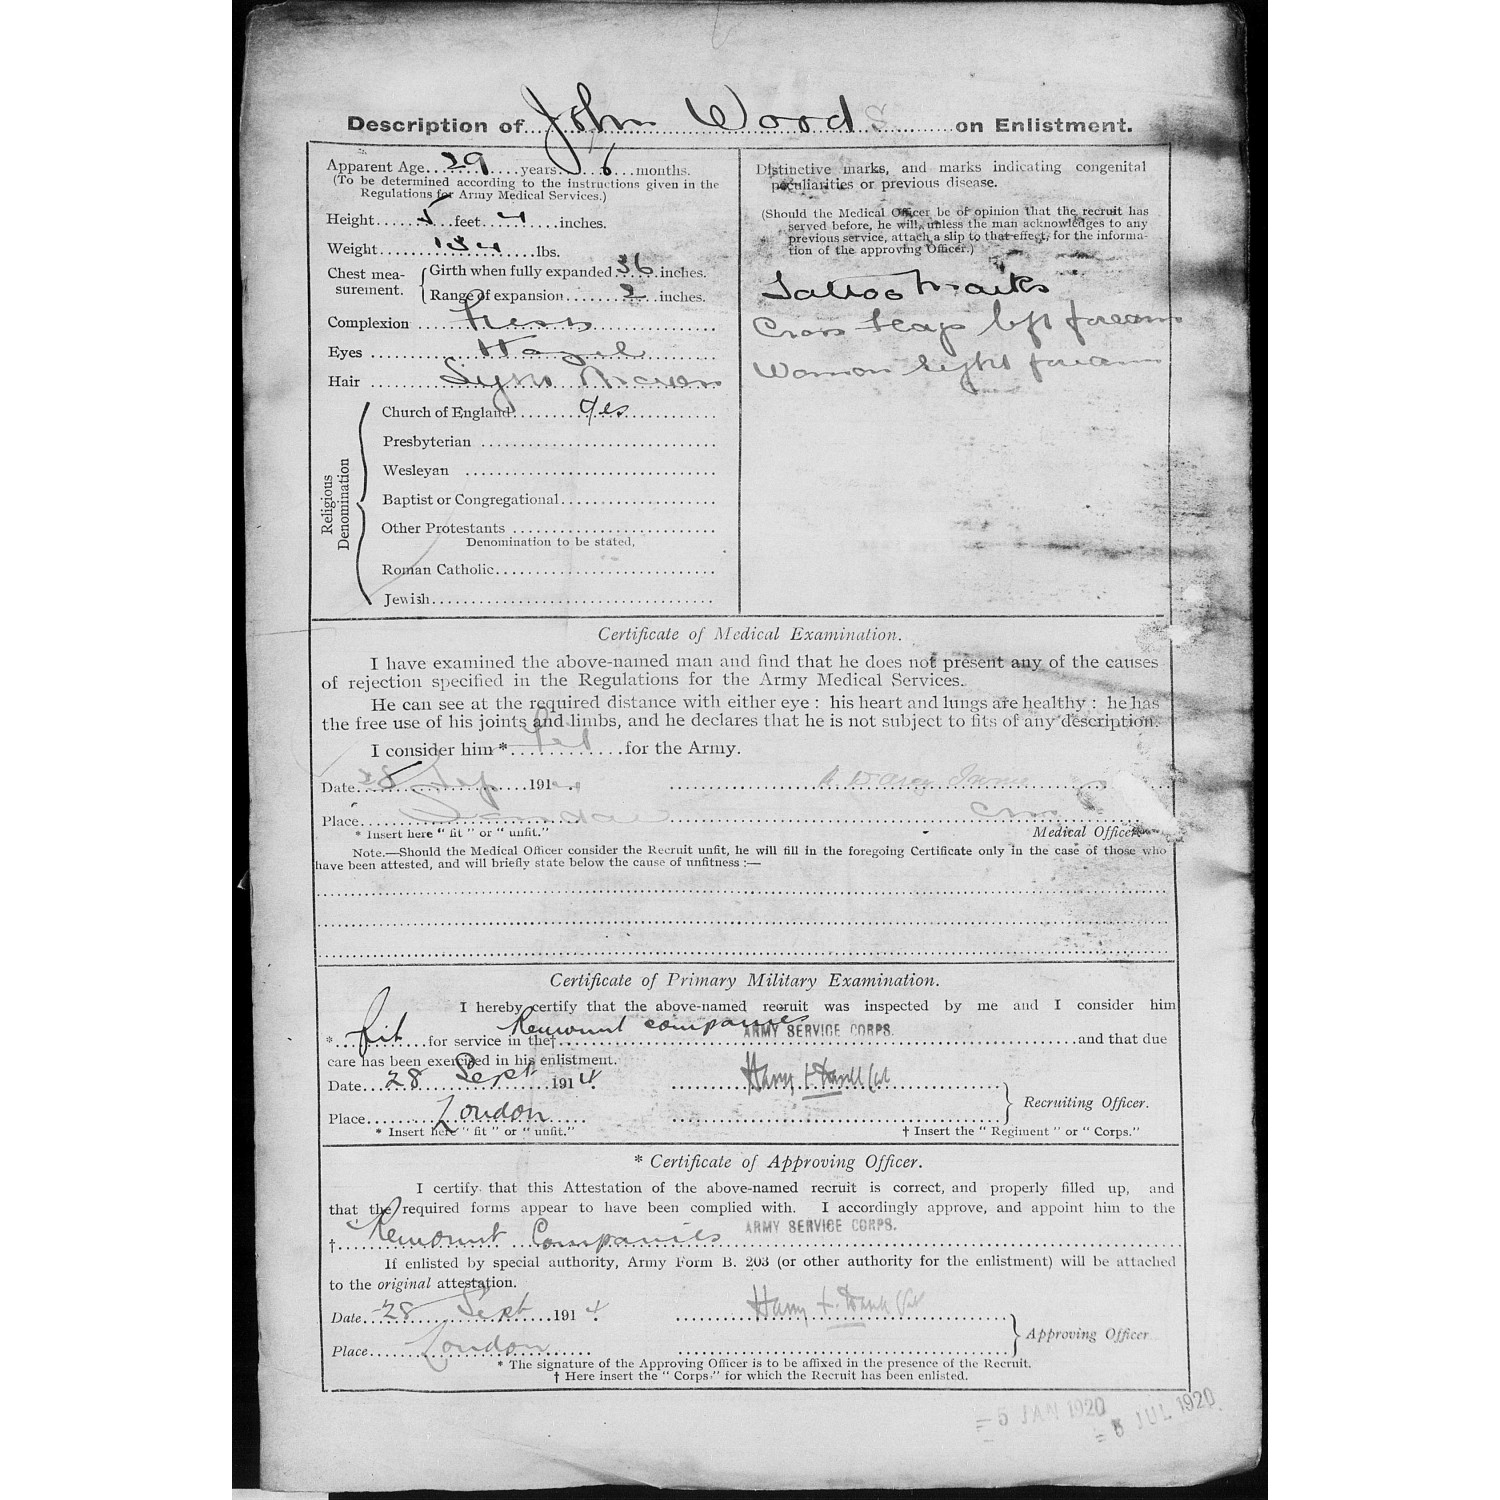 Description of John Woods on Enlistment.
Apparent Age 29 years 6 months.
(To be determined according to the instructions given in the
Regulations for Army Medical Services.)
Height 5 feet 4 inches.
Weight 134 lbs.
Chest mea-
surement.
Girth when fully expanded 36 inches.
Range of expansion 2 inches.
Complexion Fresh
Eyes Hazel
Hair Light Brown
Religious
Denomination
Church of England Yes
Presbyterian
Wesleyan
Baptist or Congregational
Other Protestants
Denomination to be stated,
Roman Catholic
Jewish
Distinctive marks, and marks indicating congenital
peculiarities or previous disease.
(Should the Medical Officer be of opinion that the recruit has
served before, he will, unless the man acknowledges to any
previous service, attach a slip to that effect, for the informa-
tion of the approving Officer.)
Tattoo Marks
Cross flags left forearm
Woman right forearm
Certificate of Medical Examination.
I have examined the above-named man and find that he does not present any of the causes
of rejection specified in the Regulations for the Army Medical Services.
He can see at the required distance with either eye : his heart and lungs are healthy : he has
the free use of his joints and limbs, and he declares that he is not subject to fits of any description.
I consider him * Fit for the Army.
Date 28 Sep 1914
Place London
* Insert here " fit " or " unfit."
Medical Officer
Note.—Should the Medical Officer consider the Recruit unfit, he will fill in the foregoing Certificate only in the case of those who
have been attested, and will briefly state below the cause of unfitness :—
Certificate of Primary Military Examination.
I hereby certify that the above-named recruit was inspected by me and I consider him
* fit for service in the† Remount companies ARMY SERVICE CORPS. and that due
care has been exercised in his enlistment.
Date 28 Sept 1914
Harry
Place London
Recruiting Officer.
* Insert here " fit " or " unfit."
† Insert the " Regiment " or " Corps."
* Certificate of Approving Officer.
I certify that this Attestation of the above-named recruit is correct, and properly filled up, and
that the required forms appear to have been complied with. I accordingly approve, and appoint him to the
† Remount Companies ARMY SERVICE CORPS.
If enlisted by special authority, Army Form B. 203 (or other authority for the enlistment) will be attached
to the original attestation.
Date 28 Sept 1914
Harry
Place London
Approving Officer
* The signature of the Approving Officer is to be affixed in the presence of the Recruit.
† Here insert the " Corps " for which the Recruit has been enlisted.
5 JAN 1920
JUL 1920